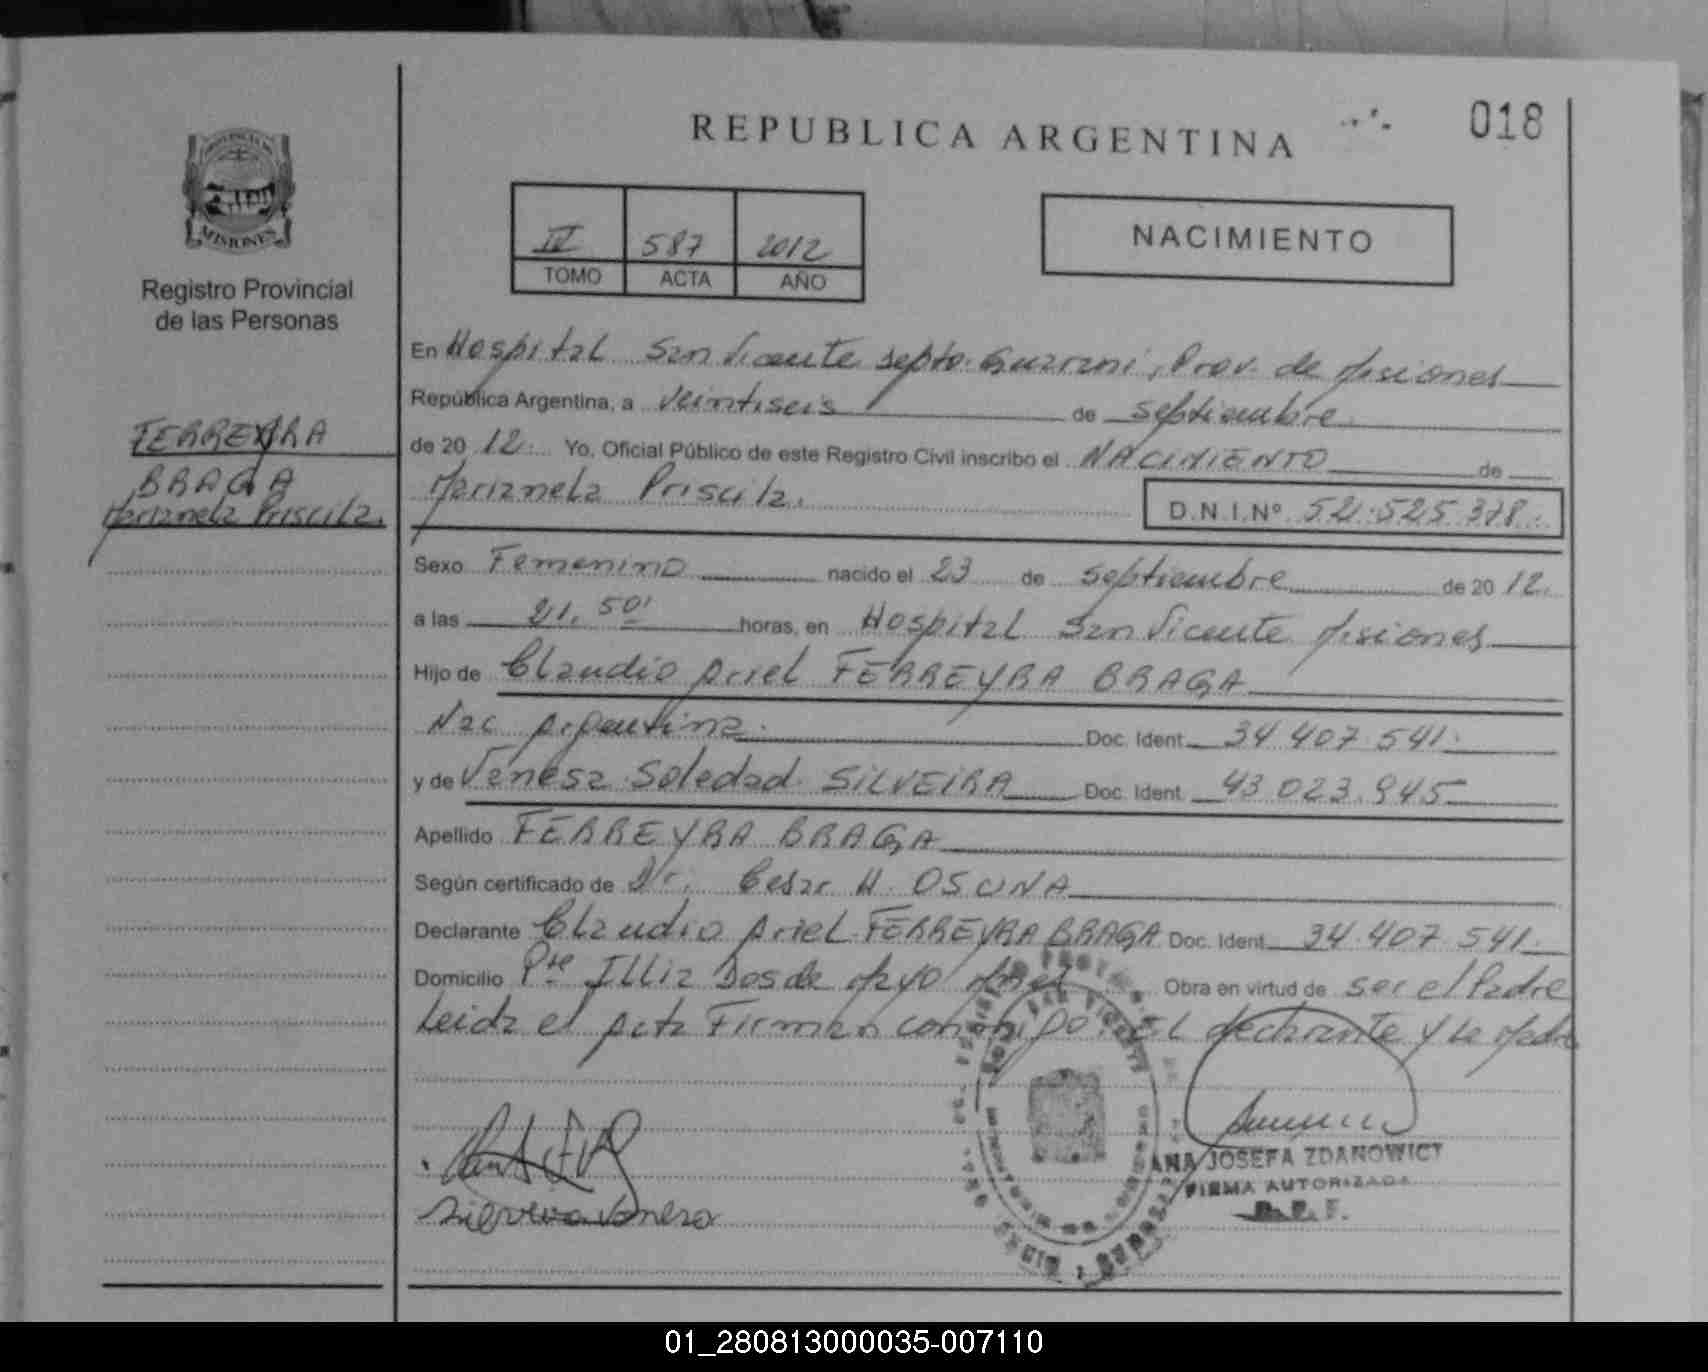 REPUBLICA ARGENTINA
018
PROVINCIA DE
MISIONES
Registro Provincial
de las Personas
IV 587 2012
TOMO ACTA AÑO
NACIMIENTO
FERREYRA
BRAGA
Marianela Priscila.
En Hospital San Vicente Depto. Guarani, Prov. de Misiones
República Argentina, a veintiseis de septiembre
de 20 12. Yo, Oficial Público de este Registro Civil inscribo el NACIMIENTO de
Marianela Priscila. D.N.I.Nº 52.525.378.
Sexo Femenino nacido el 23 de septiembre de 20 12.
a las 21.50' horas, en Hospital San Vicente Misiones
Hijo de Claudio Ariel FERREYRA BRAGA
Nac Argentina. Doc. Ident. 34.407.541.
y de Vanesa Soledad SILVEIRA Doc. Ident. 43.023.945
Apellido FERREYRA BRAGA
Según certificado de Dr. Cesar H. OSUNA
Declarante Claudio Ariel FERREYRA BRAGA Doc. Ident. 34.407.541.
Domicilio Pte Illia Dos de Mayo Mnes Obra en virtud de ser el Padre
Leida el Acta Firman conmigo: El declarante y la Madre
Silveira Vanesa
ANA JOSEFA ZDANOWICT
FIRMA AUTORIZADA
01_280813000035-007110